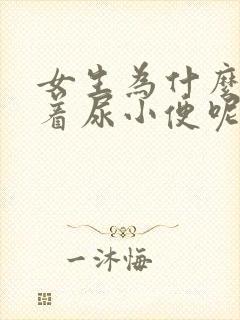 女生為什麼
着尿小便呢
一沐悔